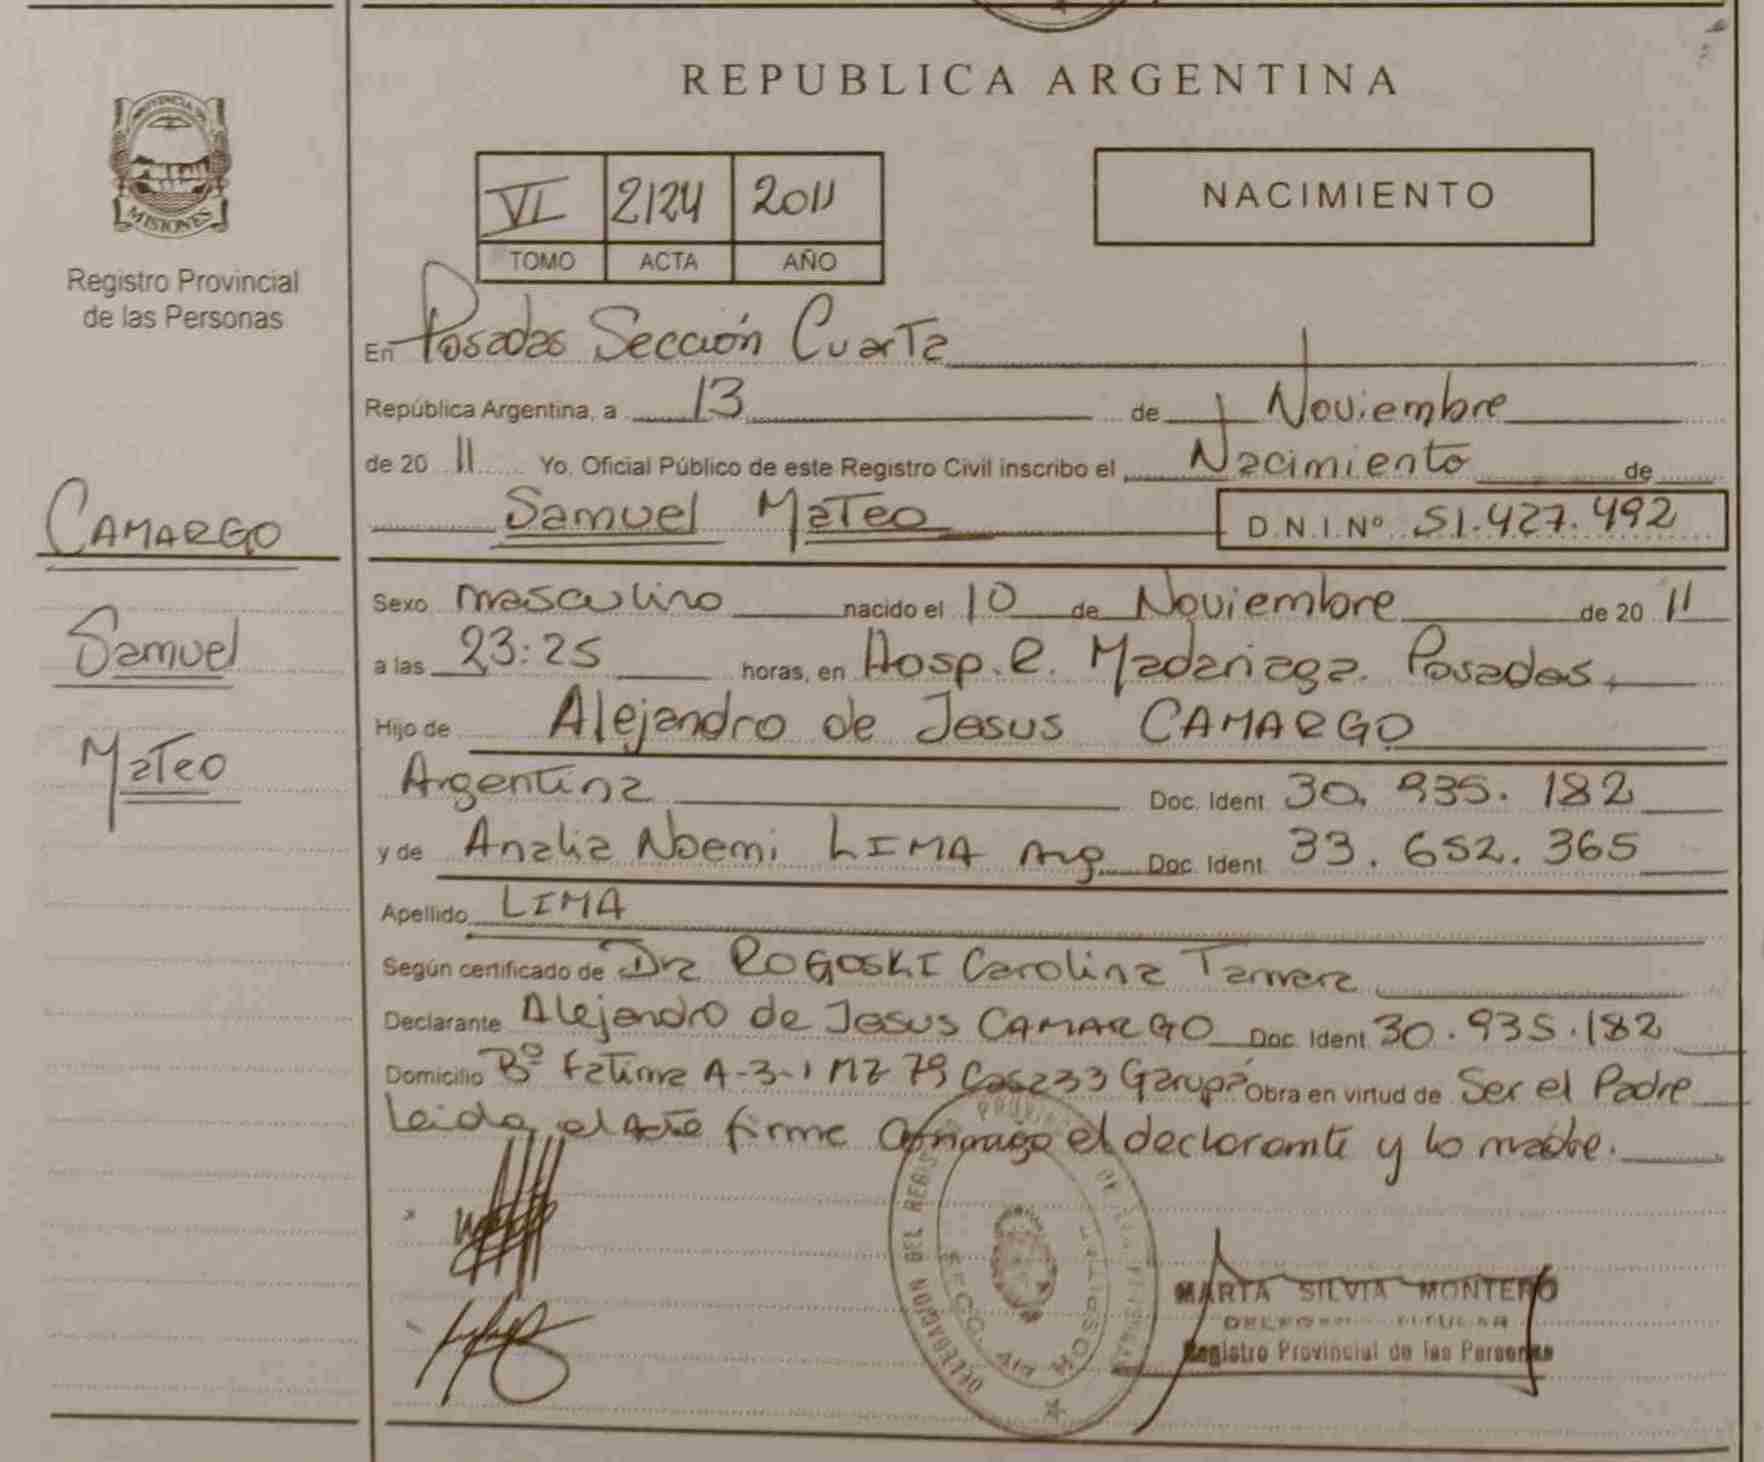 PROVINCIA DE
MISIONES
Registro Provincial
de las Personas
CAMARGO
Samuel
Mateo
REPUBLICA ARGENTINA
VI 2124 2011
TOMO ACTA AÑO
NACIMIENTO
En Posadas Sección Cuarta
República Argentina, a 13 de Noviembre
de 20 11 Yo, Oficial Público de este Registro Civil inscribo el Nacimiento de
Samuel Mateo D.N.I.Nº 51.427.492
Sexo masculino nacido el 10 de Noviembre de 20 11
a las 23:25 horas, en Hosp. R. Madariaga. Posadas.
Hijo de Alejandro de Jesus CAMARGO
Argentina Doc. Ident. 30.935.182
y de Analia Noemi LIMA Arg. Doc. Ident. 33.652.365
Apellido LIMA
Según certificado de Dra ROGOSKI Carolina
Declarante Alejandro de Jesus CAMARGO Doc. Ident 30.935.182
Domicilio Bº Fatima A-3-1 MZ 79 Casa 33 Garupá Obra en virtud de Ser el Padre
Leida el Acta firma conmigo el declarante y la madre.
DELEGACION DEL REGISTRO PROVINCIAL DE LAS PERSONAS
HOSPITAL
MARTA SILVIA MONTERO
DELEGADA TITULAR
Registro Provincial de las Personas